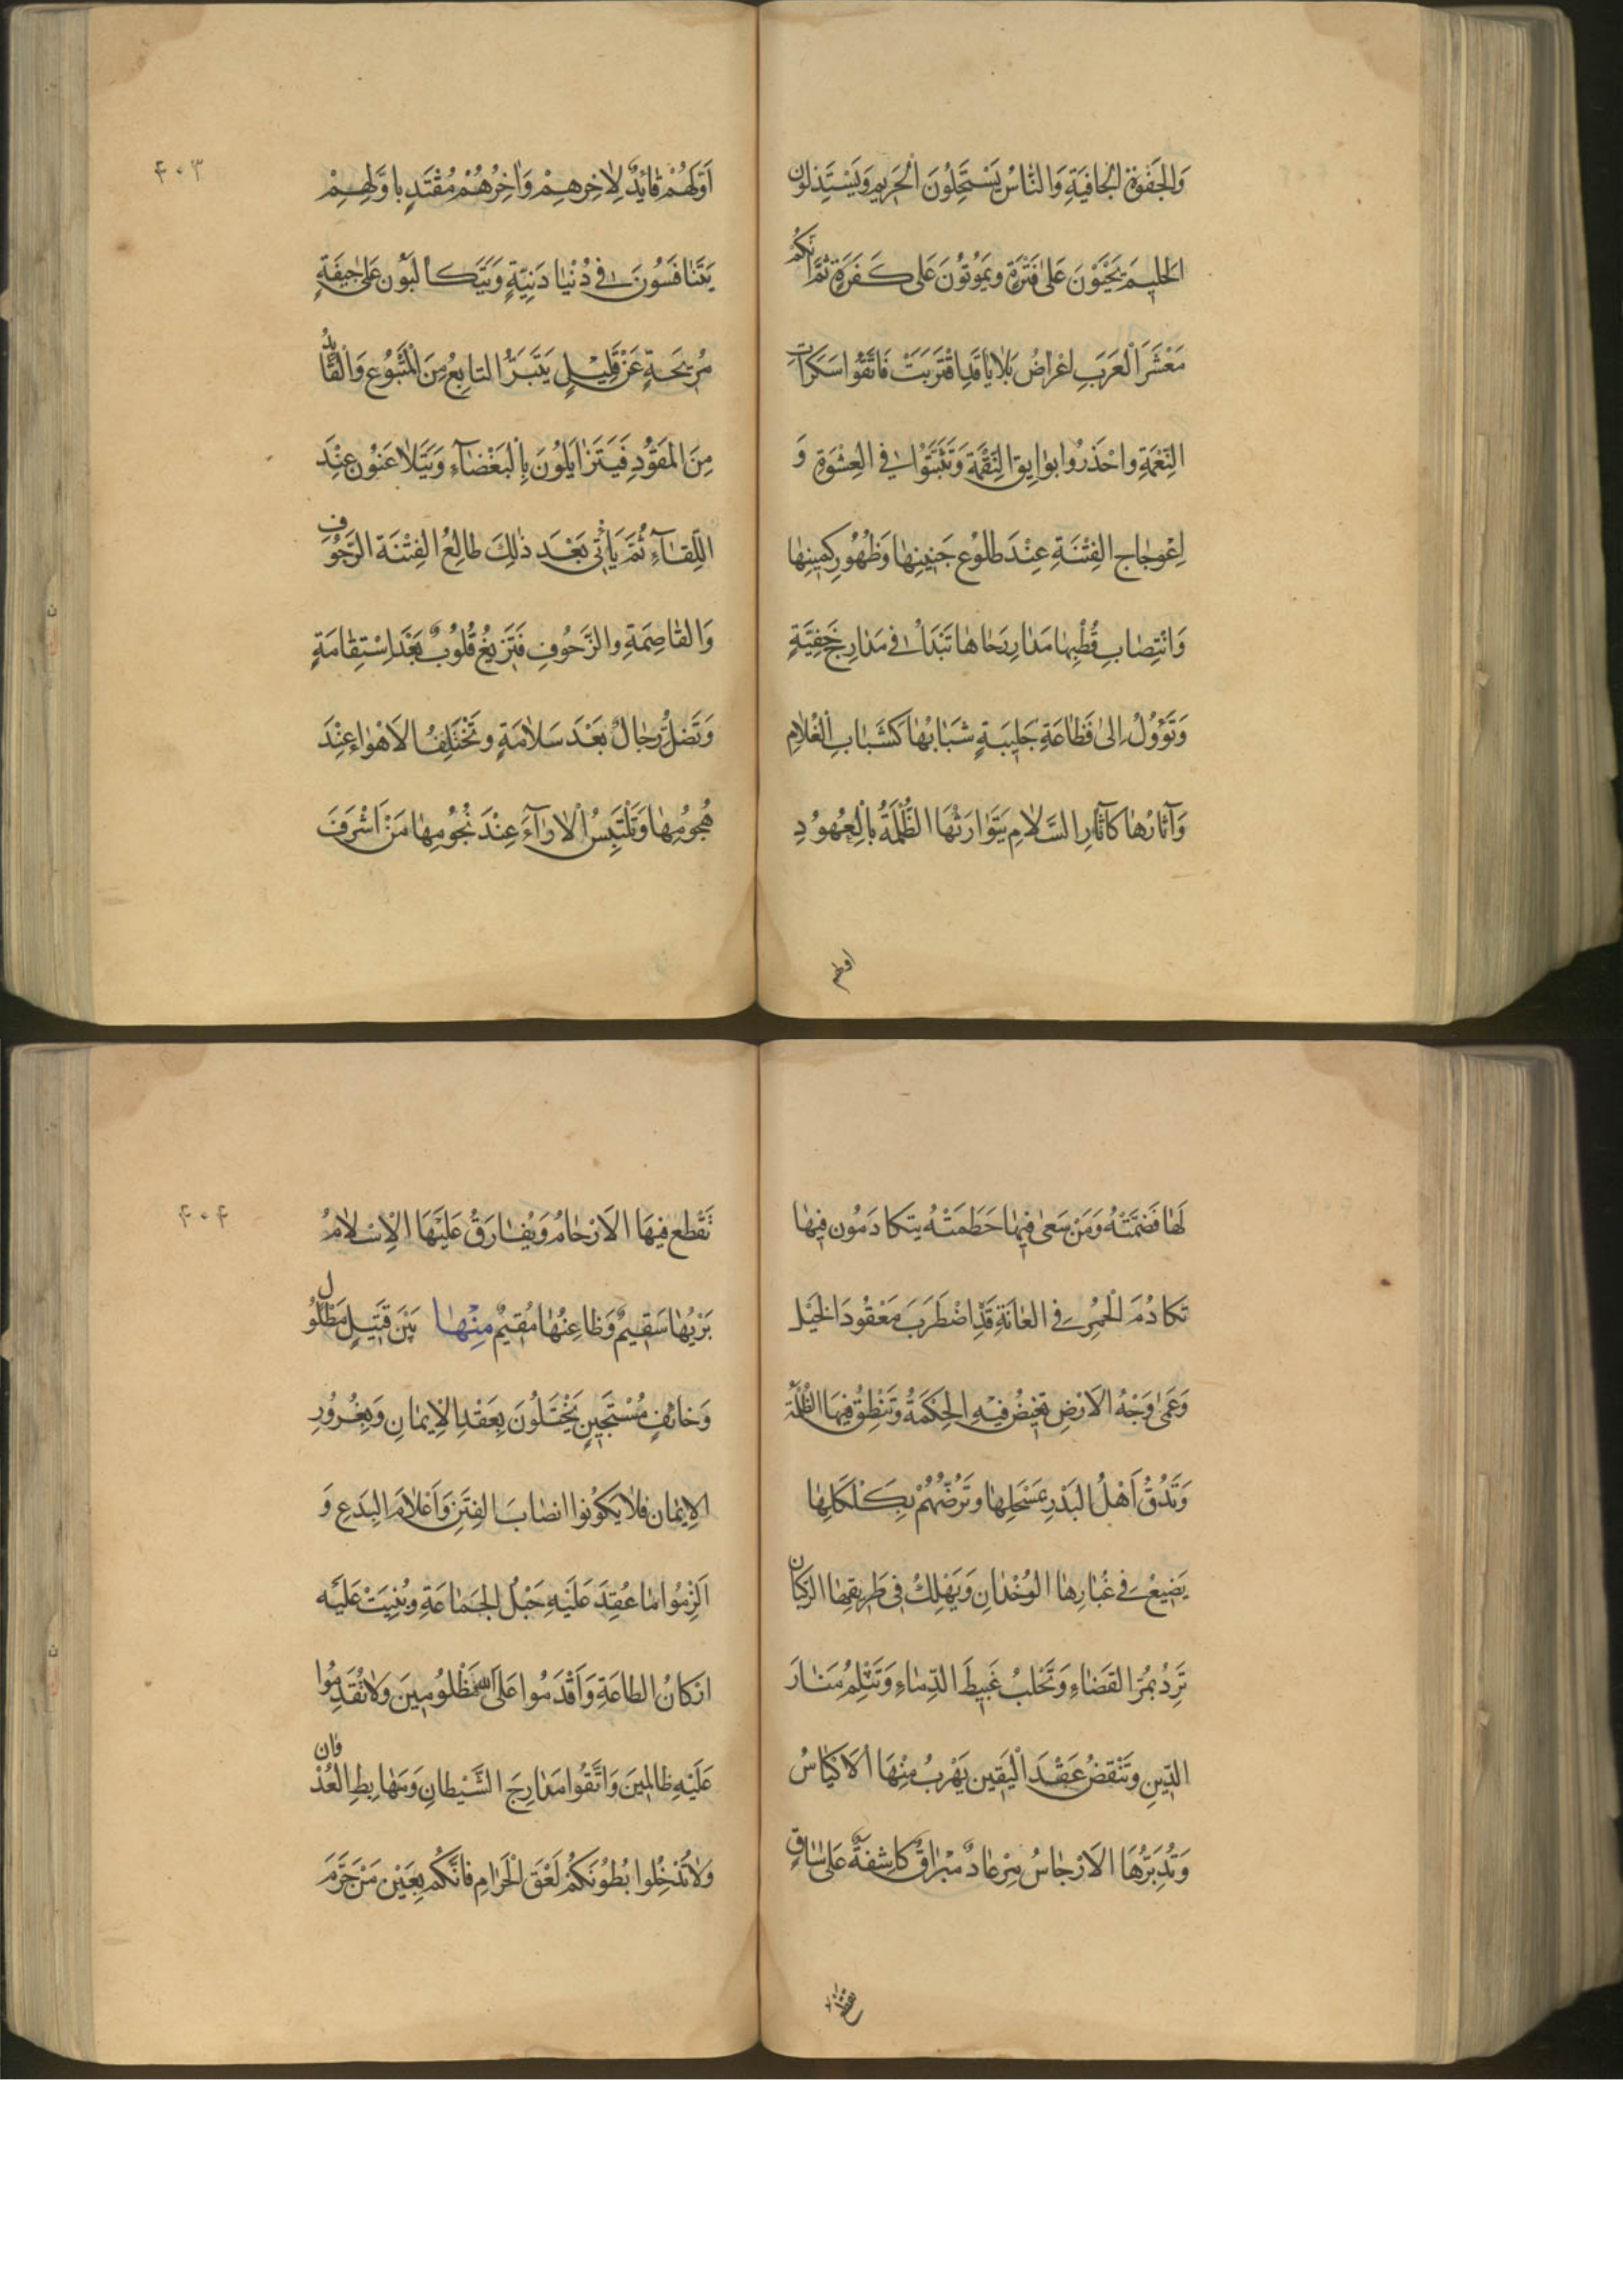 وَالجَفْوَةِ الجٰافِيَةِ وَالنّٰاسُ يَسْتَحِلُّونَ الْحَرِيمَ وَيَسْتَذِلوُن
الحَلِيمَ يَحْيَوْنَ عَلىٰ فَتْرَةٍ وَيَمُوتُونَ عَلى كَفَرَةٍ ثُمَّ انَكُمْ
مَعْشَرَ الْعَرَبِ اغراضُ بَلاٰيا قَدِ اقْتَرَبَتْ فَاتَّقُوا سَكَرٰاتِ
النِّعْمَةِ واحْذَرُوا بوٰايِقَ النِّقْمَةِ وَتَثَبَّتَوُا فِي العِشْوَةِ وَ
اعْوِجٰاج الفِتْنَةِ عِنْدَ طلوُع جَنِينِهٰا وَظُهُورِ كَمِينِهٰا
وَانْتِصٰابِ قُطْبِهٰا مَدٰارِ رَحٰاهٰا تَبْدَاُ فى مَدٰارِجَ خَفِيَّةٍ
وَتَؤُولُ اِلىٰ فَظٰاعَةٍ جَلِيبَةٍ شَبٰابُهٰا كَشَبٰابِ الْغُلاٰمِ
وَآثٰارُهٰا كَآثٰارِ السَّلاٰمِ يَتَوٰارَثُهَا الظُّلَمَةُ بِالْعُهوُدِ
اولهم
۴۰۳
اَوَّلهُمْ قٰائِدٌ لِاٰخِرِهِمْ وَاٰخِرُهُمْ مُقْتَدٍ باوَّلِهِمْ
يَتَنٰافَسُونَ في دُنْيٰا دَنِيَّةٍ وَيَتَكٰالَبوُن عَلىٰ جٖيفَةٍ
مُرِيحَةٍ عَنْ قَلِيْلٍ يَتَبَرَّاُ التابِعُ مِنَ الْمَتْبُوُعِ وَالْقٰائِدُ
مِنَ المَقوُدِ فَيَتَزٰايَلُونَ بِالْبَغْضٰآءِ وَيَتَلاٰعَنوُن عِنْدَ
اللِّقٰآءِ ثُمَّ يَأتى بَعْدَ ذٰلِكَ طٰالِعُ الفِتْنَة الرَّجُوف
وَالقٰاصِمَةِ والزَّحوُفِ فَتَزيغُ قُلُوبٌ بَعْدَ اِسْتِقٰامَةٍ
وَتَضِلُّ رِجٰالٌ بَعْدَ سَلاٰمَةٍ وَتَخْتَلِفُ الاَهْوٰاء عِنْدَ
هُجوُمِهٰا وَتَلْتَبِسُ الْاٰرٰآءُ عِنْدَ نُجُومِهٰا مَنْ اَشْرَفَ
لَهٰا قَصَمَتْهُ وَمَنْ سَعىٰ فِيهٰا حَطَمَتْهُ يتكادَمُون فِيهٰا
تَكادُمَ الْحُمُرِ فِي العٰانَةِ قَدِ اضْطَرَبَ مَعْقُودَ الخَيْلِ
وَعَمىٰ وَجْهُ الاَرْضِ تغيضُ فيٖهِ الحِكْمَةُ وَتَنْطِقُ فِيهَا الظُّلَمَة
وَتَدُقُّ اَهْلُ البَدْرِ بِمَسْحَلِهٰا وَتَرُضُّهُمْ بِكَلْكَلِهٰا
يَضِيعُ في غُبٰارِهٰا الوُحْدٰانِ وَيَهْلِكُ فى طَرِيقِهٰا الرُّكبٰان
تَرِدُ بمُرِّ القَضٰاءِ وَتَحْلبُ عَبِيطَ الدِّمٰاءِ وَتَثْلِمُ مَنٰارَ
الدّينِ وَتَنْقضُ عَقْدَ الْيَقينِ يَهْرَبُ مِنْهَا الاَكْيٰاسُ
وَتُدَبِّرُهَا الاَرْجٰاسُ مِرْعٰادٌ مبْرٰاقٌ كٰاشِفَةٌ عَلىٰ سٰاقٍ
تقطع
۴۰۴
تَقْطَع فيهَا الاَرْحٰامُ وَيُفٰارَقُ عَلَيْهَا الاِسْلاٰمُ
بَرْيُهٰا سَقِيمٌ وَظٰاعِنُهٰا مُقِيمٌ مِنْهٰا بَيْنَ قَتِيلٍ مَطْلُول
وَخائفٍ مُسْتَجِيرٍ يَخْتَلُونَ بِعَقْدِ الاِيمٰانِ وَبِغُرُورِ
الاِيمٰانِ فَلاٰ يَكوُنوُا انصٰابَ الفِتَنِ وَاَعْلاٰمَ البِدَعِ وَ
اَلْزِمُوا مٰا عُقِدَ عَلَيْهِ حَبْلُ الجَمٰاعَةِ وَبُنِيَتْ عَلَيْه
ارْكانُ الطاعَةِ وَاَقْدَمُوا عَلَى اللهِ مَظْلُومينَ وَلاٰ تُقَدِمُوا
عَلَيْهِ ظالِمينَ وَاتَّقُوا مَدٰارِجَ الشَّيْطانِ وَمَهٰابِطِ العُدْوٰان
وَلاٰ تُدْخِلُوا بُطُونَكُمْ لَعْقَ الْحَرٰامِ فَاِنَّكُم بِعَيْنِ مَنْ حَرَّمَ